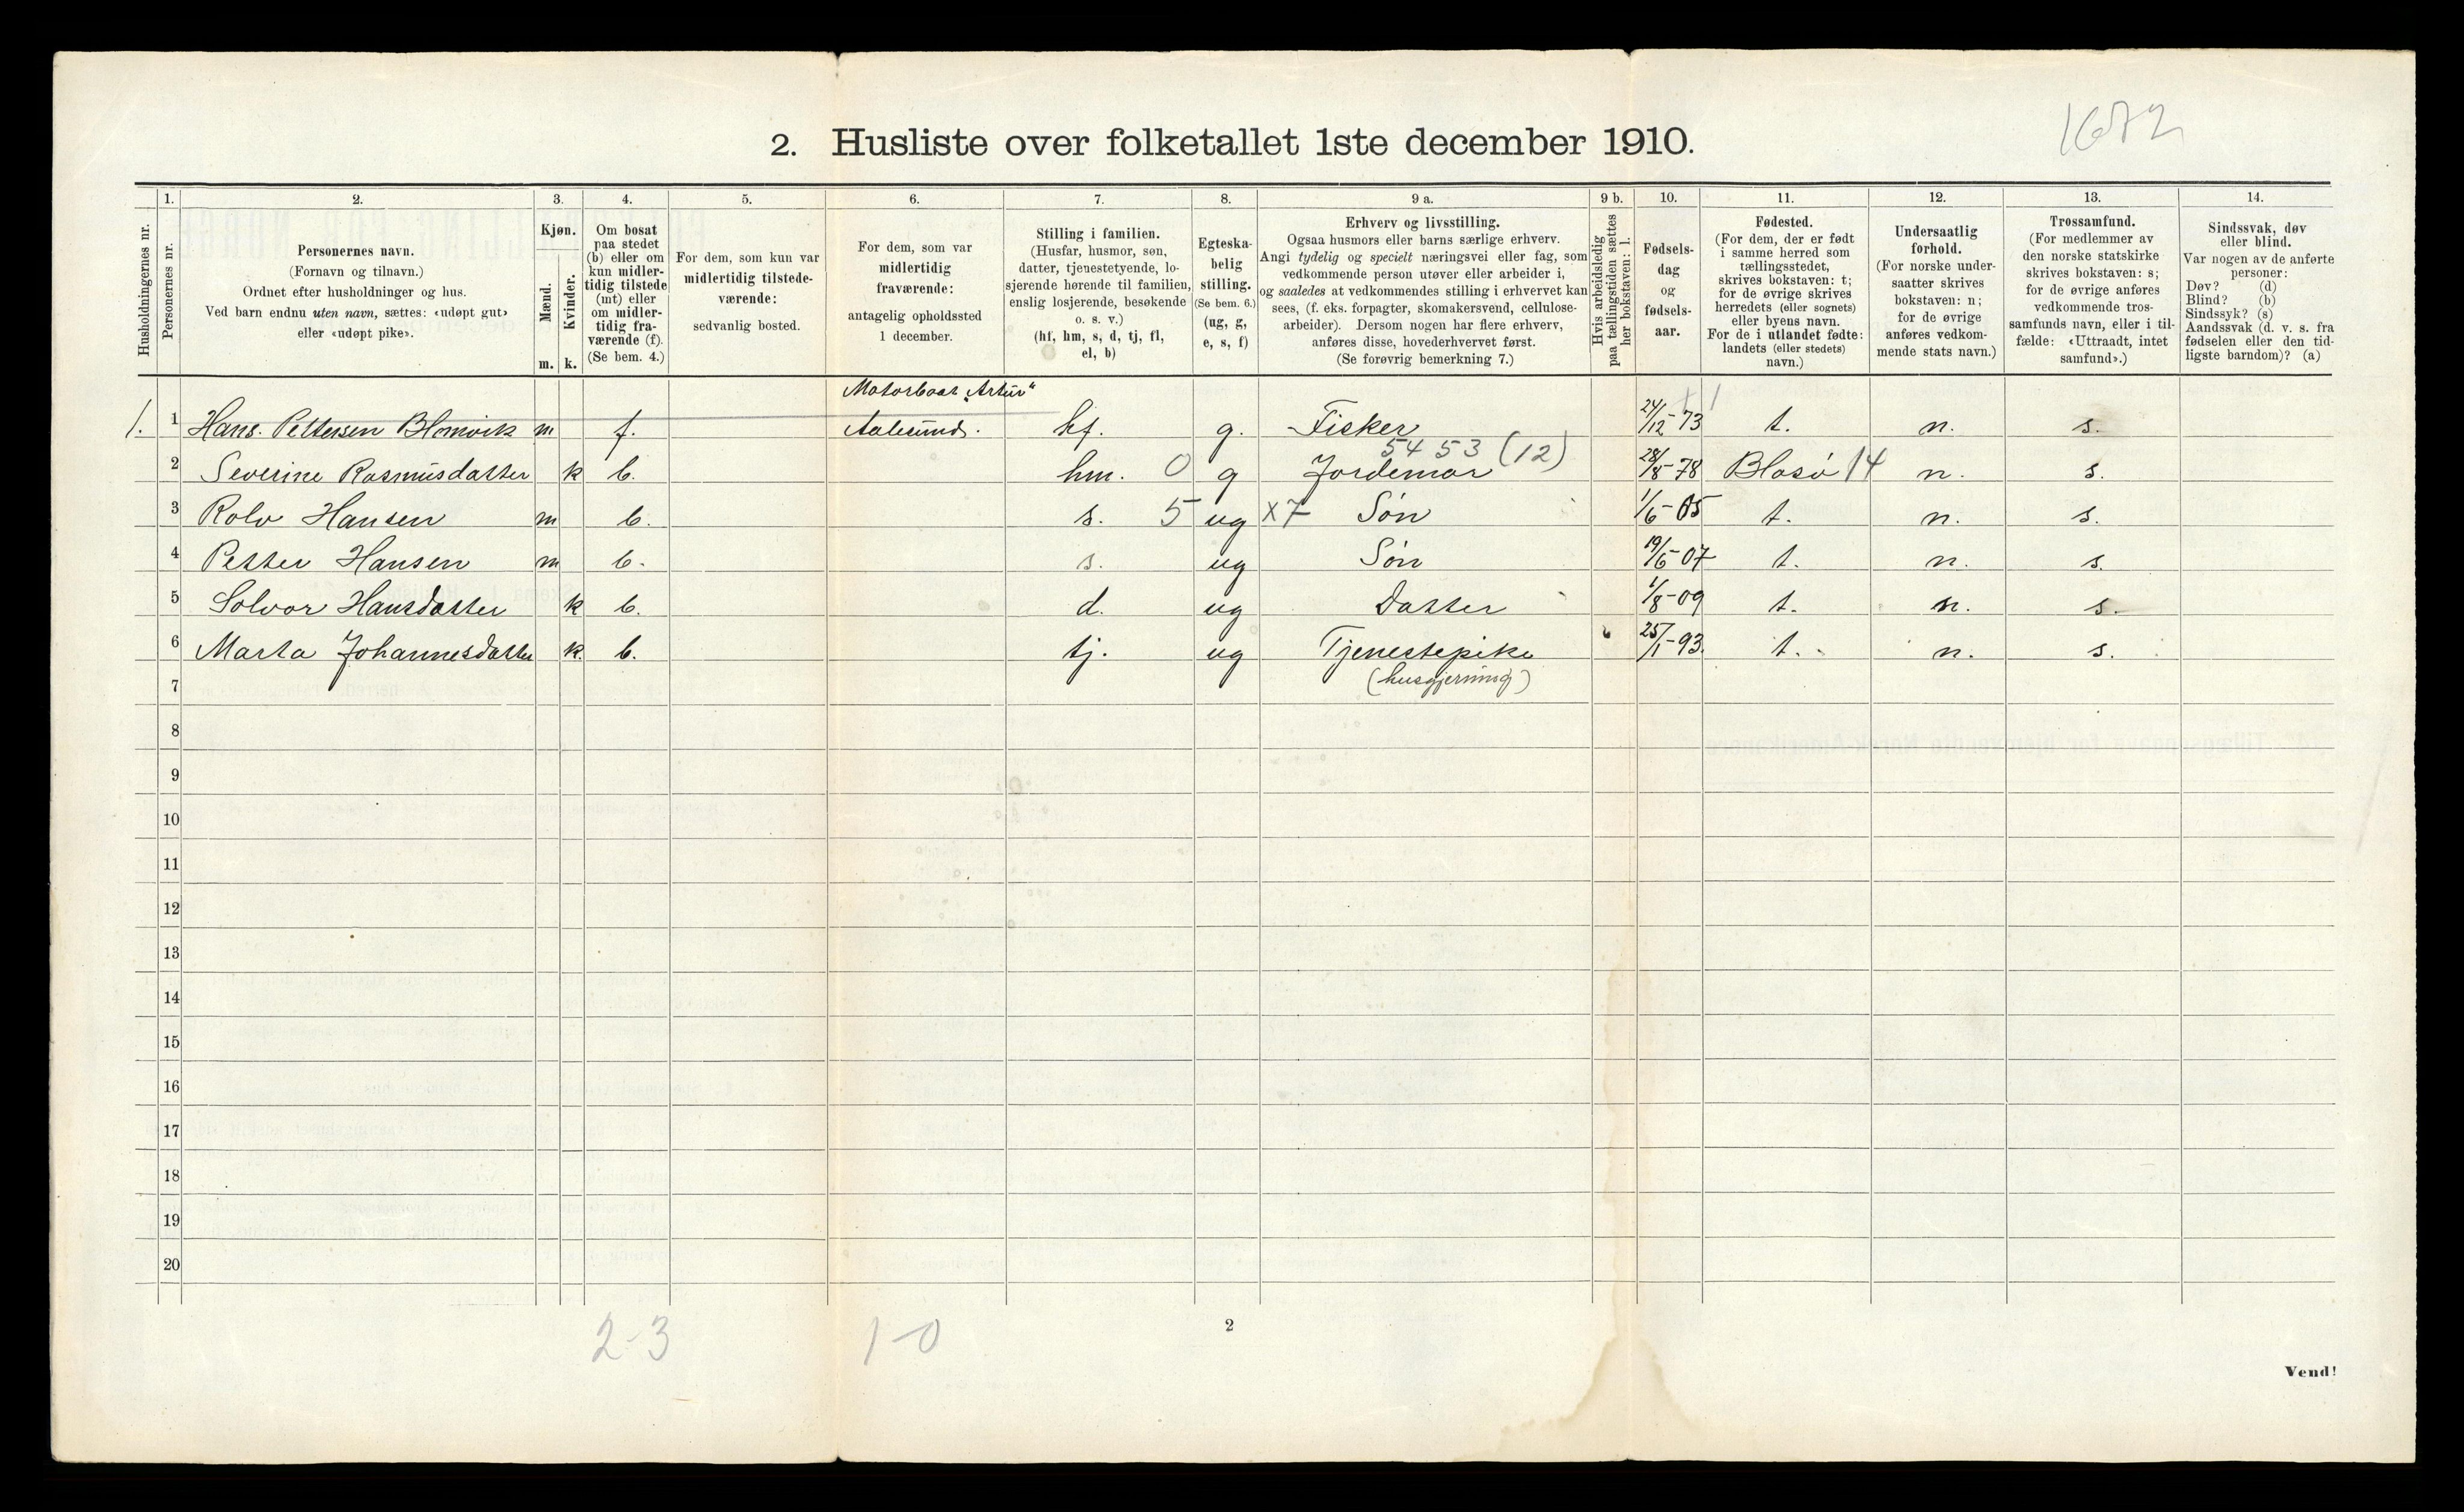 1672
2. Husliste over folketallet 1ste december 1910.
Husholdningernes nr.
1.
Personernes nr.
2.
Personernes navn.
(Fornavn og tilnavn.)
Ordnet efter husholdninger og hus.
Ved barn endnu uten navn, sættes: «udøpt gut»
eller «udøpt pike».
3.
Kjøn.
Mænd.
m.
Kvinder.
k.
4.
Om bosat
paa stedet
(b) eller om
kun midler-
tidig tilstede
(mt) eller
om midler-
tidig fra-
værende (f).
(Se bem. 4.)
5.
For dem, som kun var
midlertidig tilstede-
værende:
sedvanlig bosted.
6.
For dem, som var
midlertidig
fraværende:
antagelig opholdssted
1 december.
7.
Stilling i familien.
(Husfar, husmor, søn,
datter, tjenestetyende, lo-
sjerende hørende til familien,
enslig losjerende, besøkende
o. s. v.)
(hf, hm, s, d, tj, fl,
el, b)
8.
Egteska-
belig
stilling.
(Se bem. 6.)
(ug, g,
e, s, f)
9 a.
Erhverv og livsstilling.
Ogsaa husmors eller barns særlige erhverv.
Angi tydelig og specielt næringsvei eller fag, som
vedkommende person utøver eller arbeider i,
og saaledes at vedkommendes stilling i erhvervet kan
sees, (f. eks. forpagter, skomakersvend, cellulose-
arbeider). Dersom nogen har flere erhverv,
anføres disse, hovederhvervet først.
(Se forøvrig bemerkning 7.)
9 b.
Hvis arbeidsledig
paa tællingstiden sættes
her bokstaven: l.
10.
Fødsels-
dag
og
fødsels-
aar.
11.
Fødested.
(For dem, der er født
i samme herred som
tællingsstedet,
skrives bokstaven: t;
for de øvrige skrives
herredets (eller sognets)
eller byens navn.
For de i utlandet fødte:
landets (eller stedets)
navn.)
12.
Undersaatlig
forhold.
(For norske under-
saatter skrives
bokstaven: n;
for de øvrige
anføres vedkom-
mende stats navn.)
13.
Trossamfund.
(For medlemmer av
den norske statskirke
skrives bokstaven: s;
for de øvrige anføres
vedkommende tros-
samfunds navn, eller i til-
fælde: «Uttraadt, intet
samfund».)
14.
Sindssvak, døv
eller blind.
Var nogen av de anførte
personer:
Døv? (d)
Blind? (b)
Sindssyk? (s)
Aandssvak (d. v. s. fra
fødselen eller den tid-
ligste barndom)? (a)
Motorbaat "Artur"
1. 1 Hans. Pettersen Blomvik m f. Aalesund. hf. g. Fisker 24/12-73 t. n. s.
5453 (12)
2 Severine Rasmusdatter k b. hm. 0 g Jordemor 28/8-78 14 n. s.
3 Rolv Hansen m b. s. 5 ug x7 Søn 1/6-05 t. n. s.
4 Petter Hansen m b. s. ug Søn 19/6-07 t. n. s.
5 Solvor Hansdatter k b. d. ug Datter 1/8-09 t. n. s.
6 Marta Johannesdatter k. b. tj. ug Tjenestepike 25/1-93. t. n. s.
7 (husgjerning)
8
9
10
11
12
13
14
15
16
17
18
19
20
2-3 1-0
2
Vend!